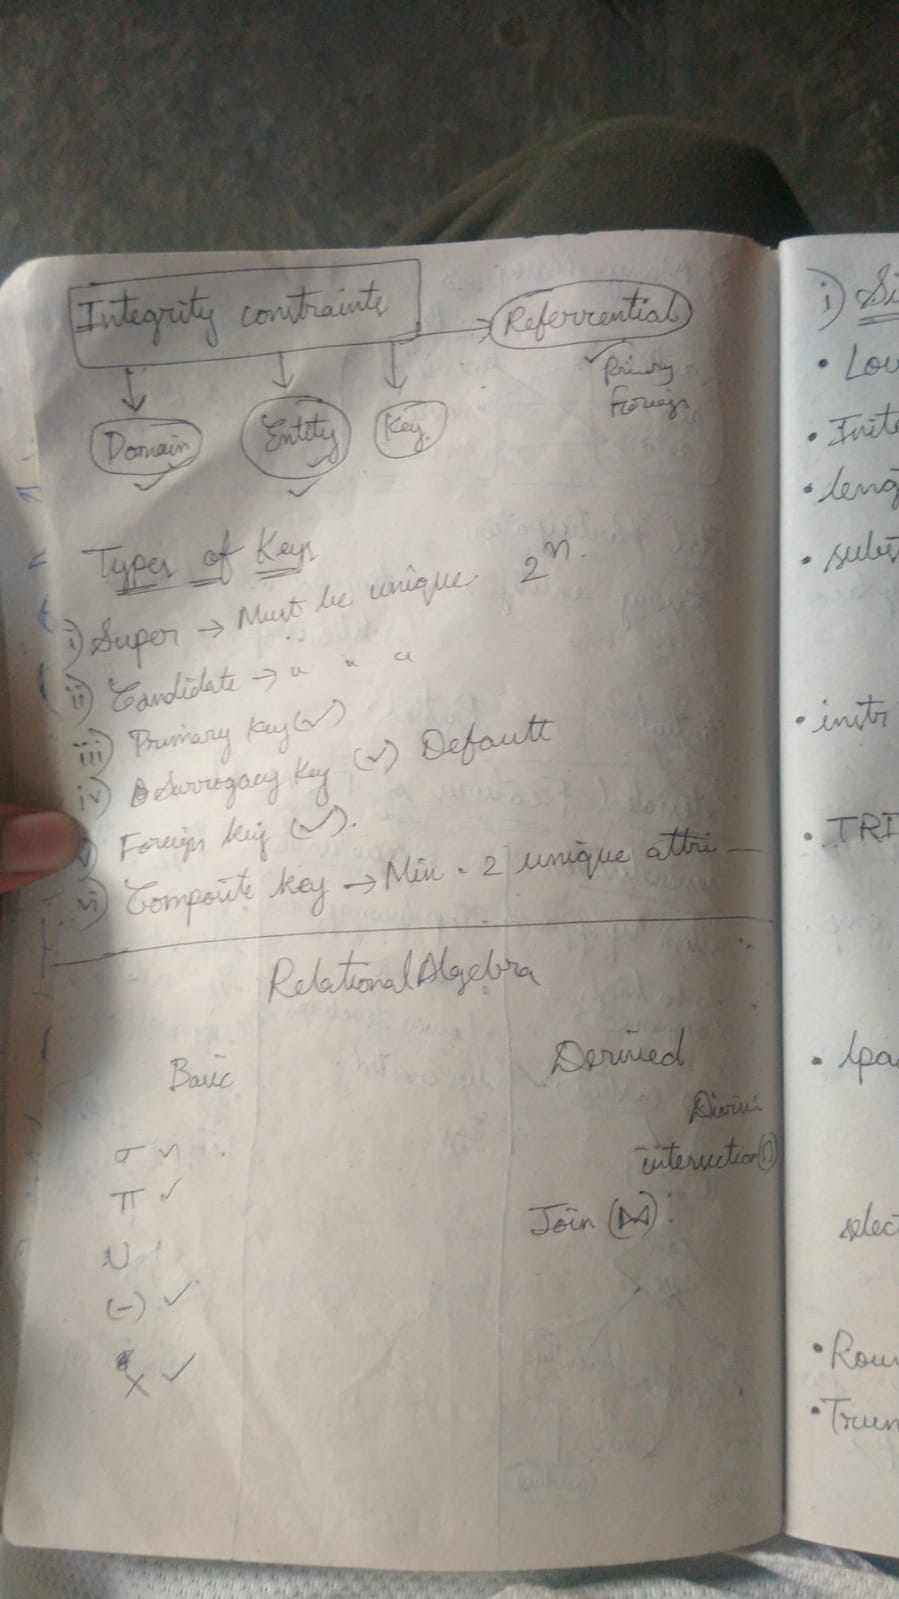 Integrity constraints
Referrential
Primary
Foreign
Domain
Entity
Key
Types of Keys
i) Super → Must be unique 2^n.
ii) Candidate → " " "
iii) Primary key (✓)
iv) Surrogacy key (✓) Default
v) Foreign key (✓).
vi) Composite key → Min. 2 unique attri —
Relational Algebra
Basic
Derived
σ ✓
intersection (∩)
π ✓
Join (⋈)
∪
(-) ✓
× ✓
i)
• TRI
• Roun
• Trun